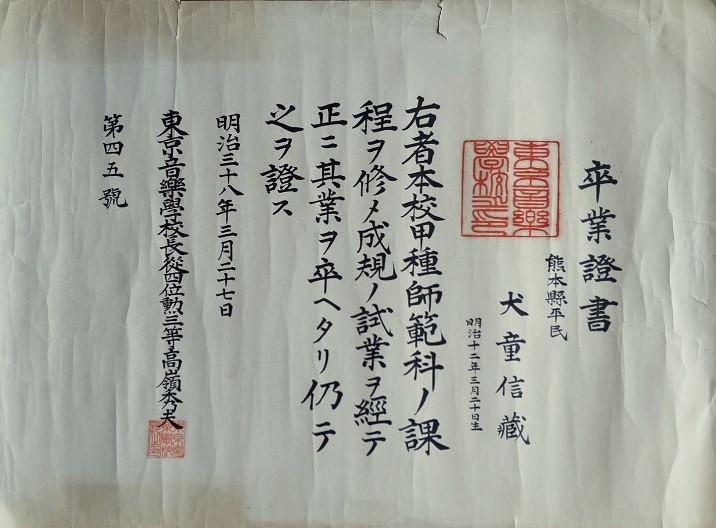 卒業證書
熊本縣平民
犬童信藏
明治十二年三月二十日生
東京音樂學校之印
右者本校甲種師範科ノ課
程ヲ修メ成規ノ試業ヲ經テ
正ニ其業ヲ卒ヘタリ仍テ
之ヲ證ス
明治三十八年三月二十七日
東京音樂學校長從四位勲三等高嶺秀夫
第四五號